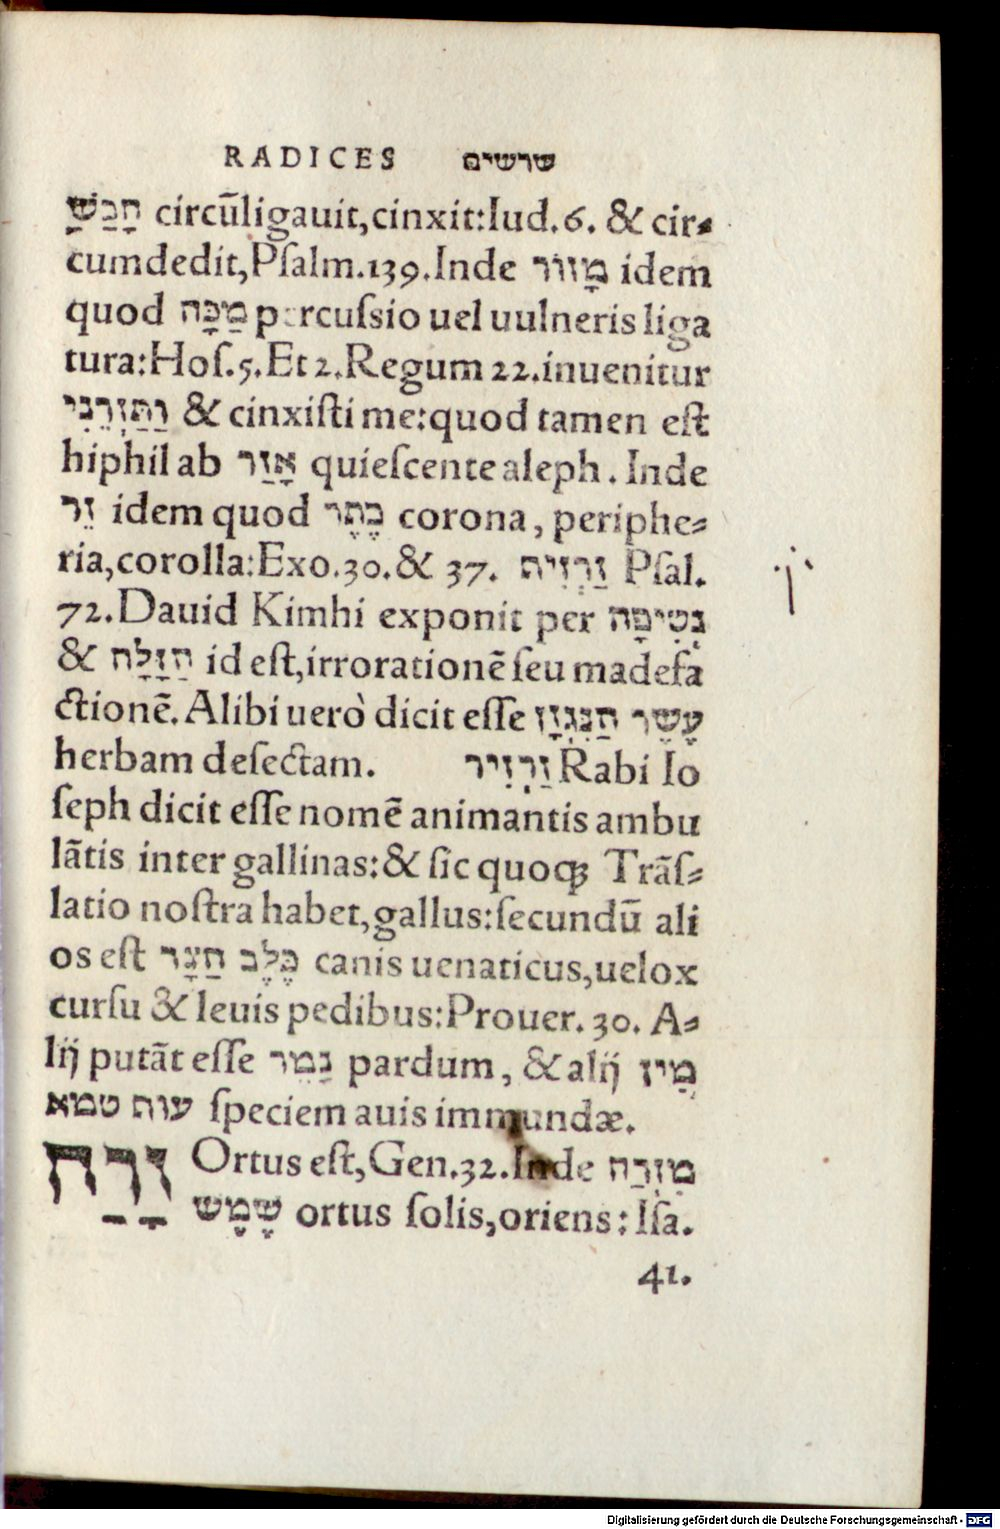 RADICES שרשים
חָבַשׁ circũligauit,cinxit:Iud.6. & cir⸗
cumdedit,Pſalm.139.Inde מָזוֹר idem
quod מַכָּה percuſsio uel uulneris liga
tura:Hoſ.5.Et 2.Regum 22.inuenitur
וַתַּזְרֵנִי & cinxiſti me:quod tamen eſt
hiphil ab אָזַר quieſcente aleph. Inde
זֵר idem quod כֶּתֶר corona, periphe⸗
ria,corolla:Exo.30.& 37. זַרְזִיה Pſal.
72.Dauid Kimhi exponit per נְטִיפָה
& הַזָּלָה id eſt,irrorationẽ ſeu madefa
ctionẽ.Alibi uerò dicit eſſe עֶשֶׂר הַנִּגְזָז
herbam deſectam. זַרְזִיר Rabi Io
ſeph dicit eſſe nomẽ animantis ambu
lãtis inter gallinas:& ſic quoqꝫ Trãſ⸗
latio noſtra habet,gallus:ſecundũ ali
os eſt כֶּלֶב חַצָר canis uenaticus,uelox
curſu & leuis pedibus:Prouer. 30. A⸗
lij putãt eſſe נָמֵר pardum, & alij מִין
עוף טמא ſpeciem auis immundæ.
זָרַח Ortus eſt,Gen.32.Inde מִזְרַח
שֶׁמֶשׁ ortus ſolis,oriens: Iſa.
41.
Digitalisierung gefördert durch die Deutsche Forschungsgemeinschaft - DFG